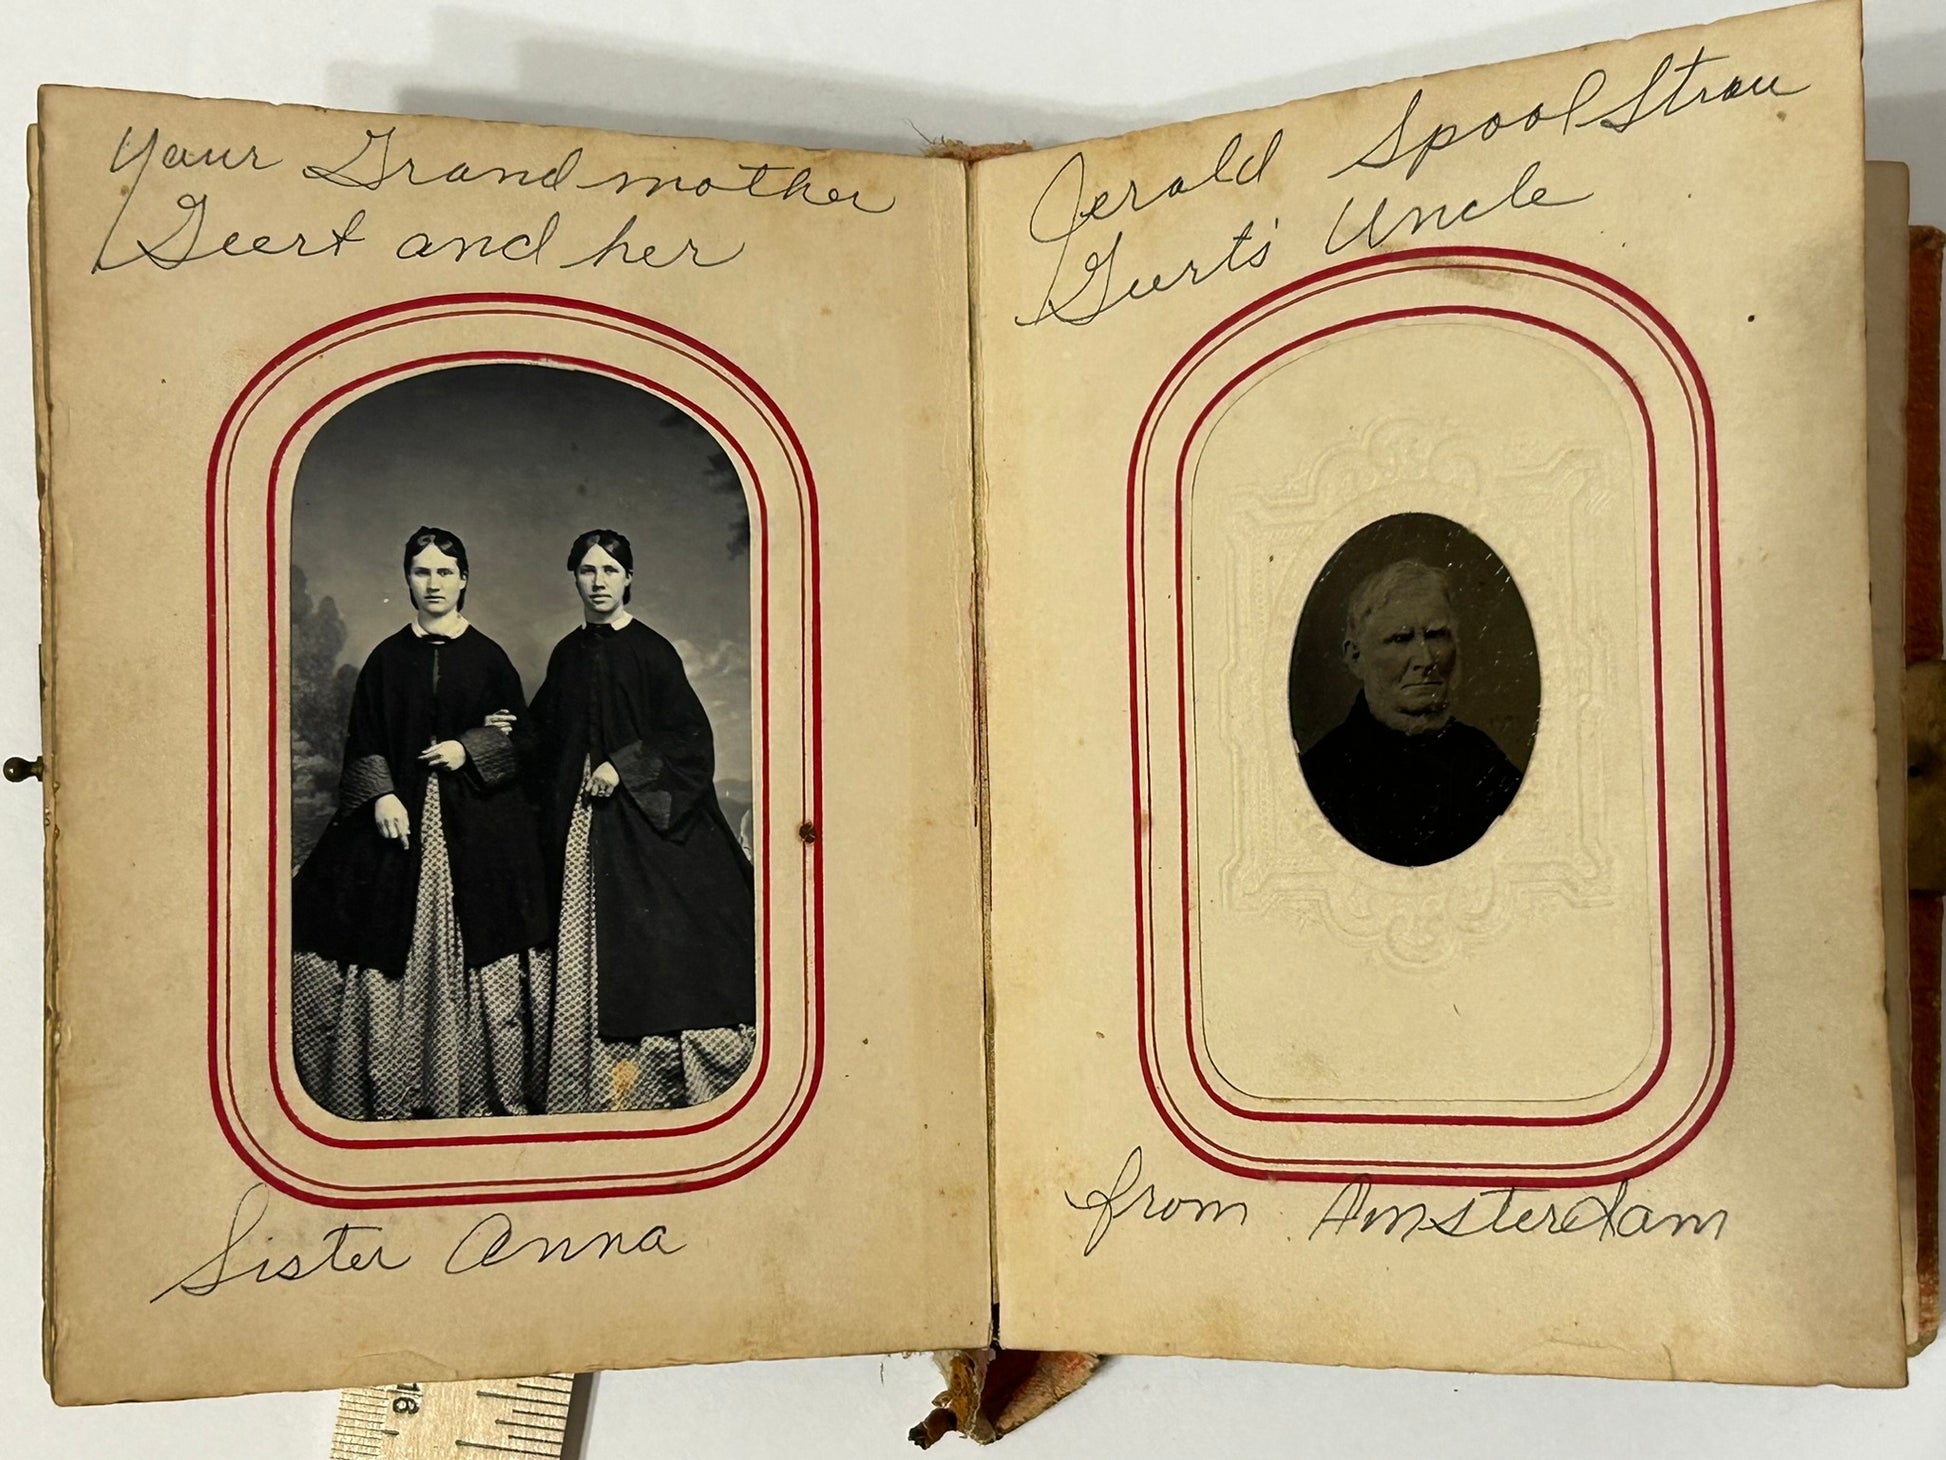 Your Grand mother
Geert and her
Sister Anna
Jerald Spool Strau
Geert's Uncle
from Amsterdam
16